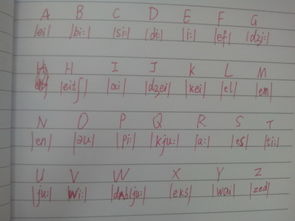 A B C D E F G
|ei| |bi:| |si:| |di:| |i:| |ef| |dʒi:|
H I J K L M
|eitʃ| |ai| |dʒei| |kei| |el| |em|
N O P Q R S T
|en| |əu| |pi:| |kju:| |a:| |es| |ti:|
U V W X Y Z
|ju:| |vi:| |eks| |wai| |zed|